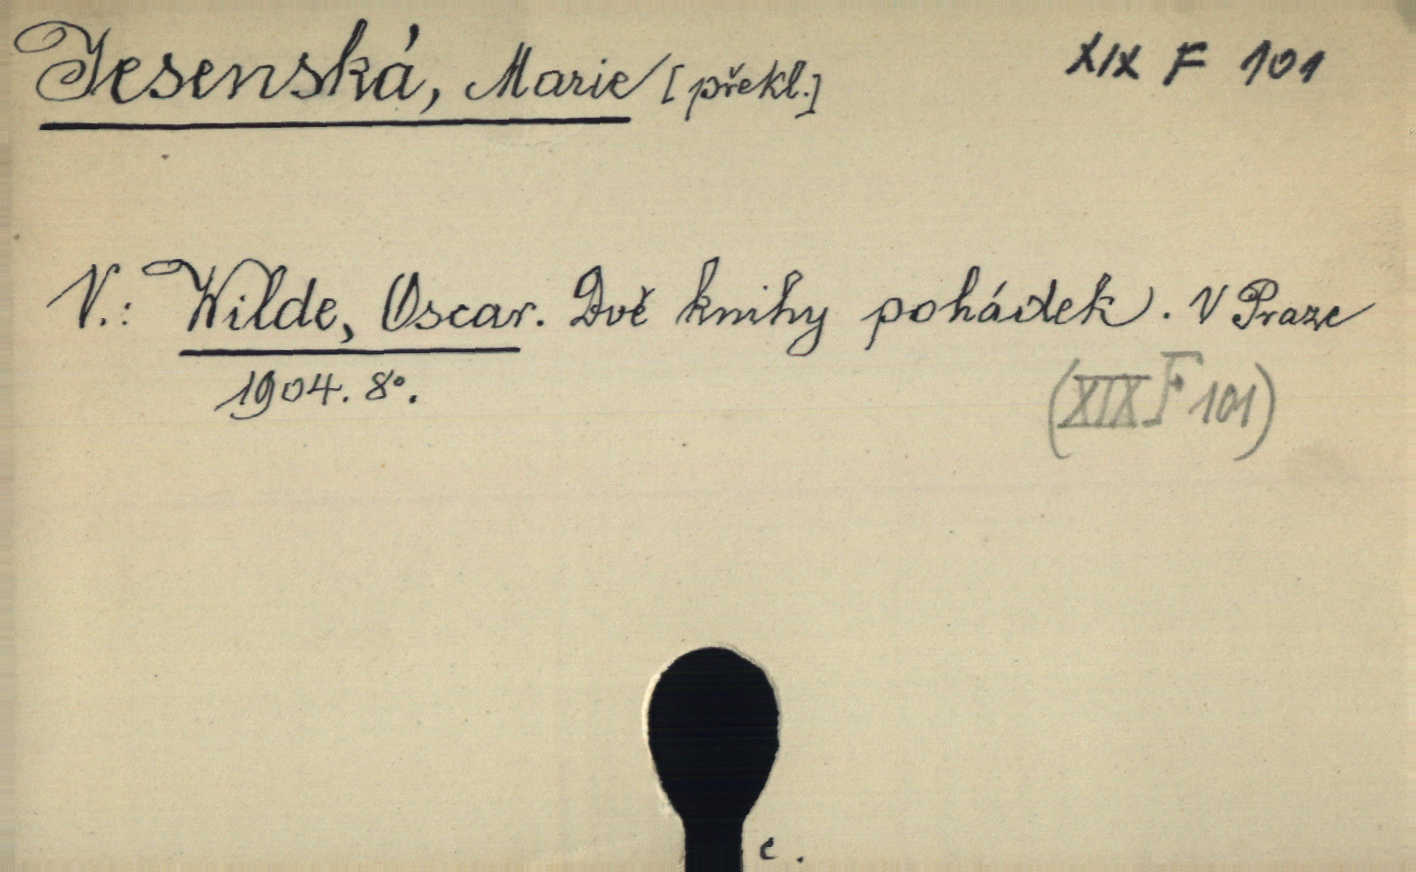 Jesenská, Marie [překl.] XIX F 101
V.: Wilde, Oscar. Dvě knihy pohádek. V Praze
1904. 8°.
(XIX F 101)
c.